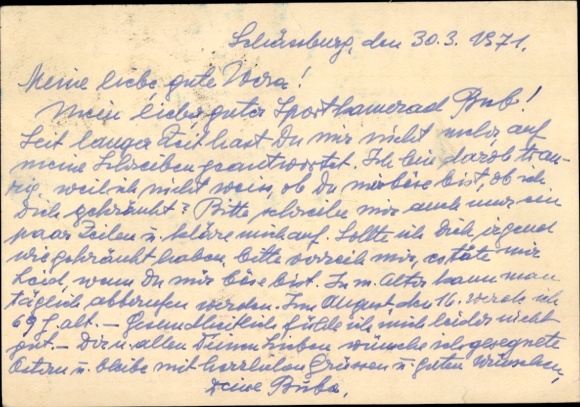 Schässburg, den 30.3.1971.
Meine liebe gute Vera!
Mein lieber guter Sportkamerad Bub!
Seit langer Zeit hast Du mir nicht mehr auf
meine Schreiben geantwortet. Ich bin darob trau-
rig, weil ich nicht weiss, ob Du mir böse bist, ob ich
Dich gekränkt? Bitte schreibe mir auch nur ein
paar Zeilen u. kläre mich auf. Sollte ich Dich irgend
wie gekränkt haben, bitte verzeih mir, es täte mir
Leid, wenn Du mir böse bist. In m. Alter kann man
täglich abberufen werden. Im August, den 16. werde ich
69 J. alt. — Gesundheitlich fühle ich mich leider nicht
gut. — Dir u. allen Deinen Lieben wünsche ich gesegnete
Ostern u. bleibe mit herzlichen Grüssen u. guten Wünschen,
Deine Buba,